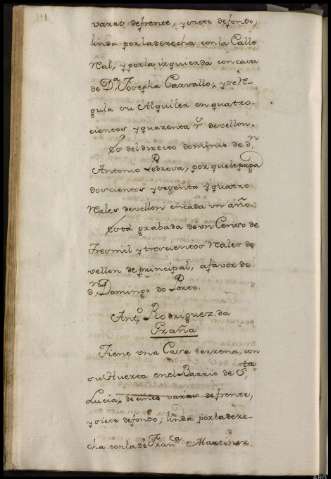 varas de frente, y siete de fondo,
linda por la derecha con la Calle
Rl., y por la izquierda con casa
de Dª. Josepha Carvallo, y
su Alquiler en quatro-
cientos y quarenta rs. de vellon.
Es del directo dominio de dn.
Antonio Pedrova, por que se paga
doscientos y setenta y quatro
Reales de vellon en cada un año.
Está grabada de un Censo de
tres mil y trescientos Reales de
vellon de principal, a favor de
dn. Domingo de
Anto. Rodriguez da
Graña
Tiene una Casa terrena, con
su Huerta en el Barrio de Sta.
Lucia, de cinco varas de frente,
y siete de fondo, linda por la dere-
cha con la de Franco. Martinez